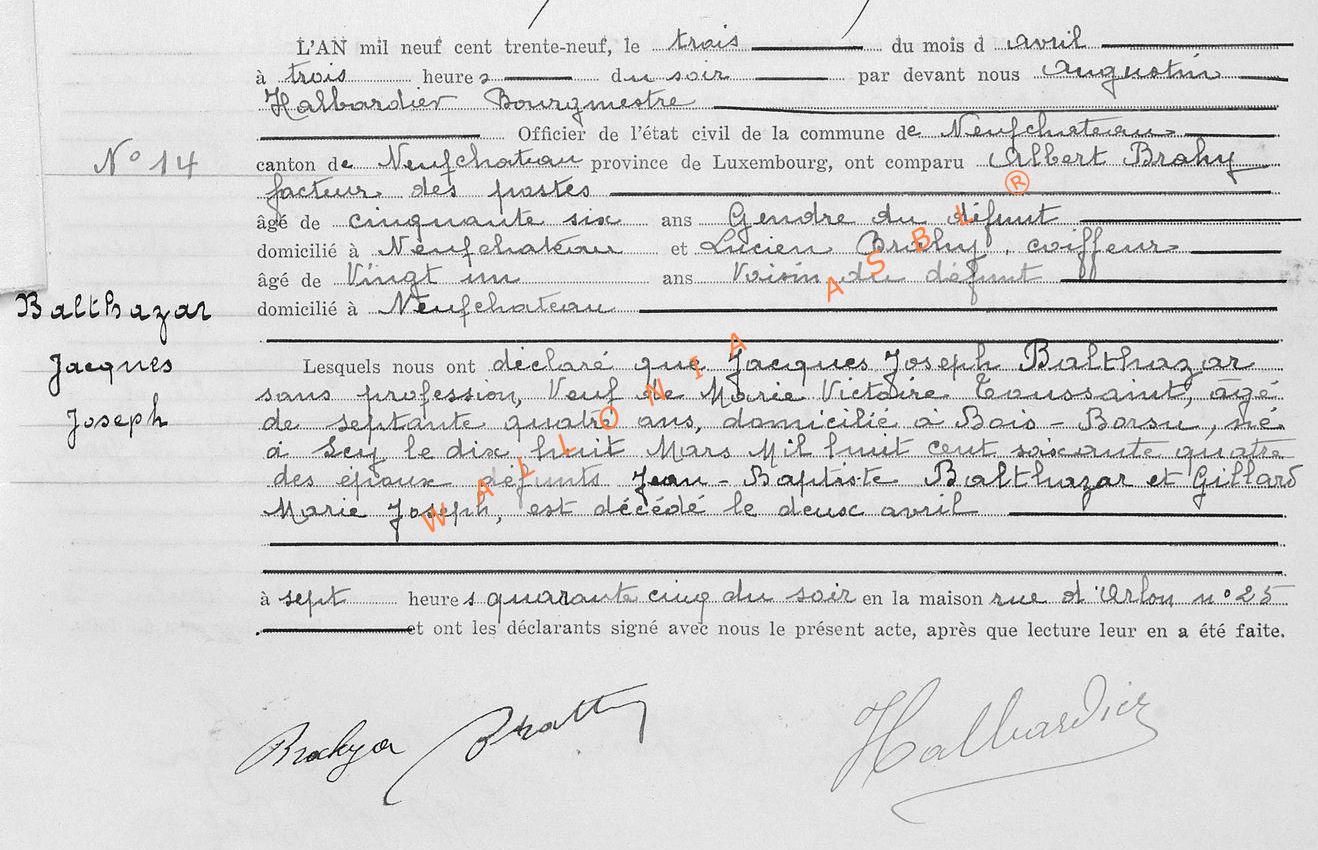 L'AN mil neuf cent trente-neuf, le trois du mois d avril
à trois heures du soir par devant nous Augustin
Halbardier Bourgmestre
Officier de l'état civil de la commune de Neufchateau
N° 14
canton de Neufchateau province de Luxembourg, ont comparu Albert Brahy
facteur des postes
âgé de cinquante six ans Gendre du défunt
domicilié à Neufchateau et Lucien Brahy, coiffeur
âgé de Vingt un ans Voisin du défunt
domicilié à Neufchateau
Balthazar
Jacques
Joseph
Lesquels nous ont déclaré que Jacques Joseph Balthazar
sans profession, Veuf de Marie Victoire Toussaint, âgé
de septante quatre ans, domicilié à Bois-Borsu, né
à Scy le dix huit Mars Mil huit cent soixante quatre
des époux défunts Jean-Baptiste Balthazar et Gillard
Marie Joseph, est décédé le deux avril
à sept heures quarante cinq du soir en la maison rue d'Arlon n° 25
et ont les déclarants signé avec nous le présent acte, après que lecture leur en a été faite.
Halbardier
WALLONIA ASBL ®